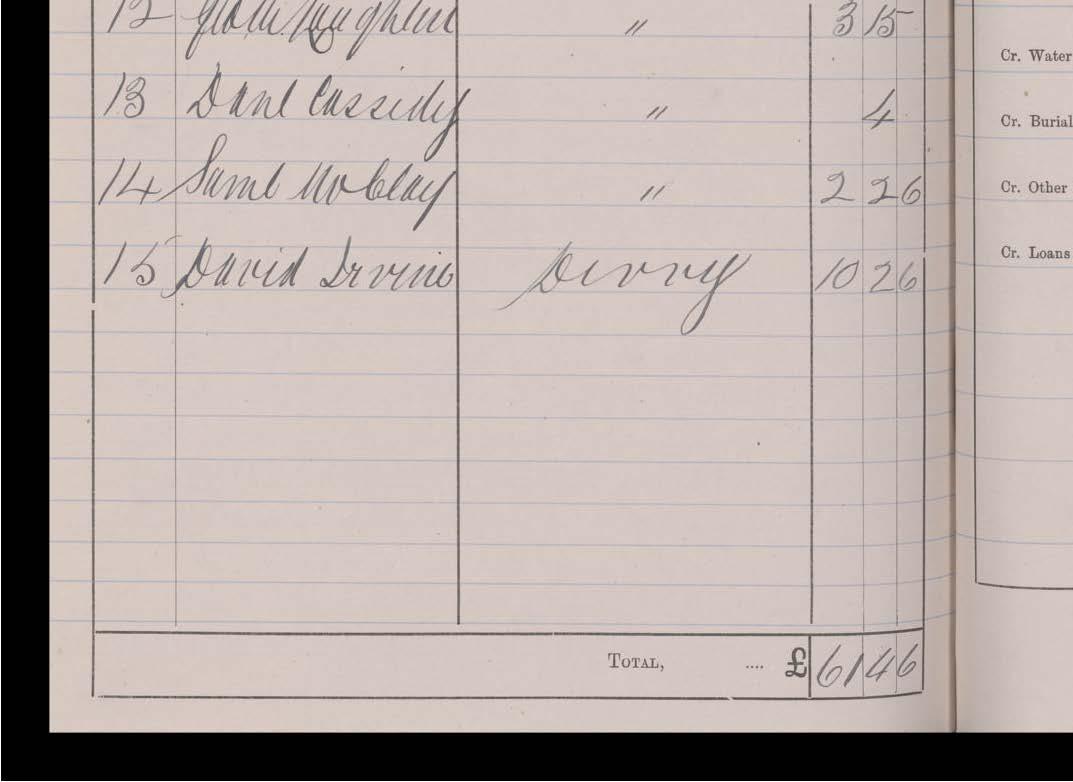 12 McLaughlin " 3 15
13 Danl Cassidy " 4
14 Saml McClay " 2 2 6
15 David Irvine Derry 10 2 6
TOTAL, .... £ 61 4 6
Cr. Water
Cr. Burial
Cr. Other
Cr. Loans